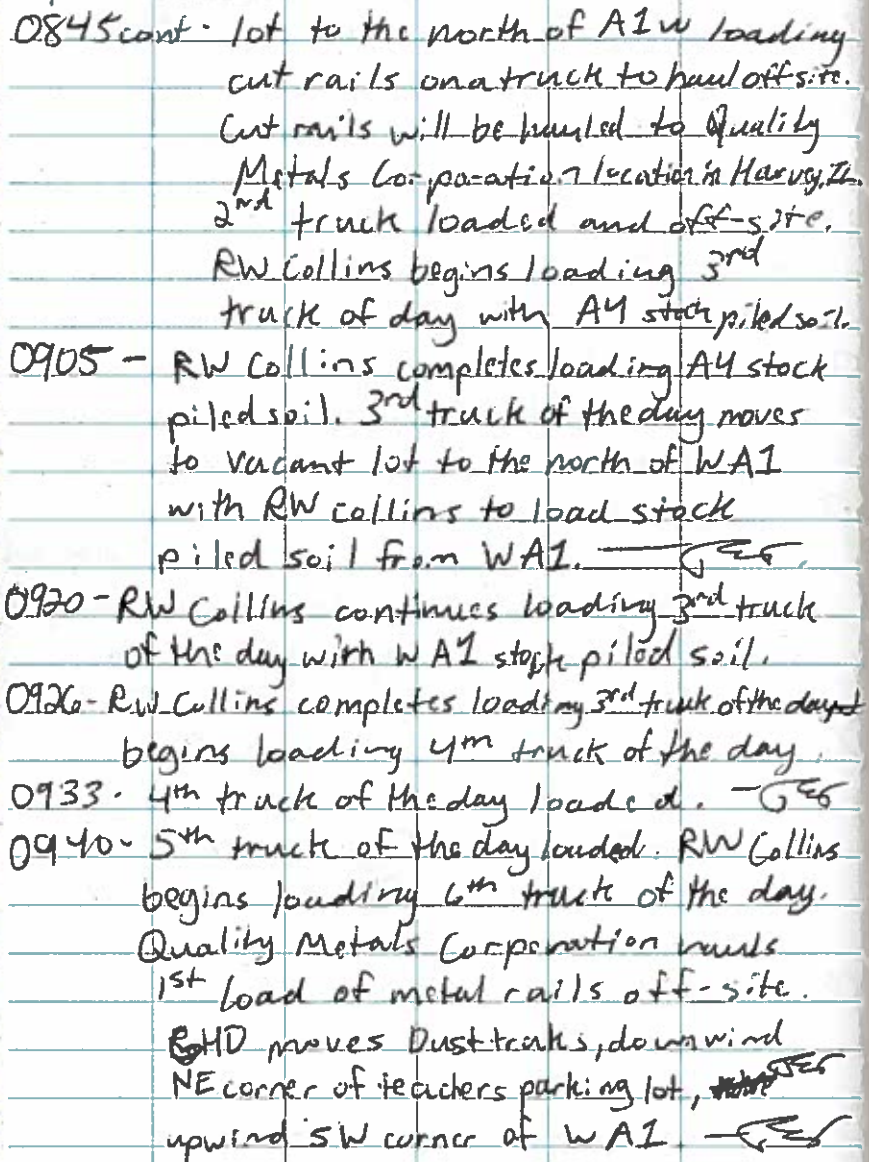 0845 cont. lot to the north of A1W loading
cut rails on a truck to haul off site.
Cut rails will be hauled to Quality
Metals Corporation location in Harvey, IL.
2nd truck loaded and off-site.
RW Collins begins loading 3rd
truck of day with A4 stock piled soil.
0905 - RW Collins completes loading A4 stock
piled soil. 3rd truck of the day moves
to vacant lot to the north of WA1
with RW collins to load stock
piled soil from WA1.
0920 - RW Collins continues loading 3rd truck
of the day with WA1 stock piled soil.
0926 - RW Collins completes loading 3rd truck of the day
begins loading 4th truck of the day.
0933 - 4th truck of the day loaded.
0940 - 5th truck of the day loaded. RW Collins
begins loading 6th truck of the day.
Quality Metals Corporation hauls
1st load of metal rails off-site.
HD moves Dusttraks, downwind
NE corner of teachers parking lot,
upwind SW corner of WA1.